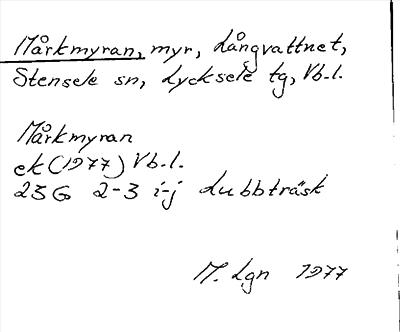 Mårkmyran, myr, Långvattnet,
Stensele sn, Lycksele tg, Vb. l.
Mårkmyran
ek (1977) Vb. l.
23G 2-3 i-j Lubbträsk
M. Lgn 1977